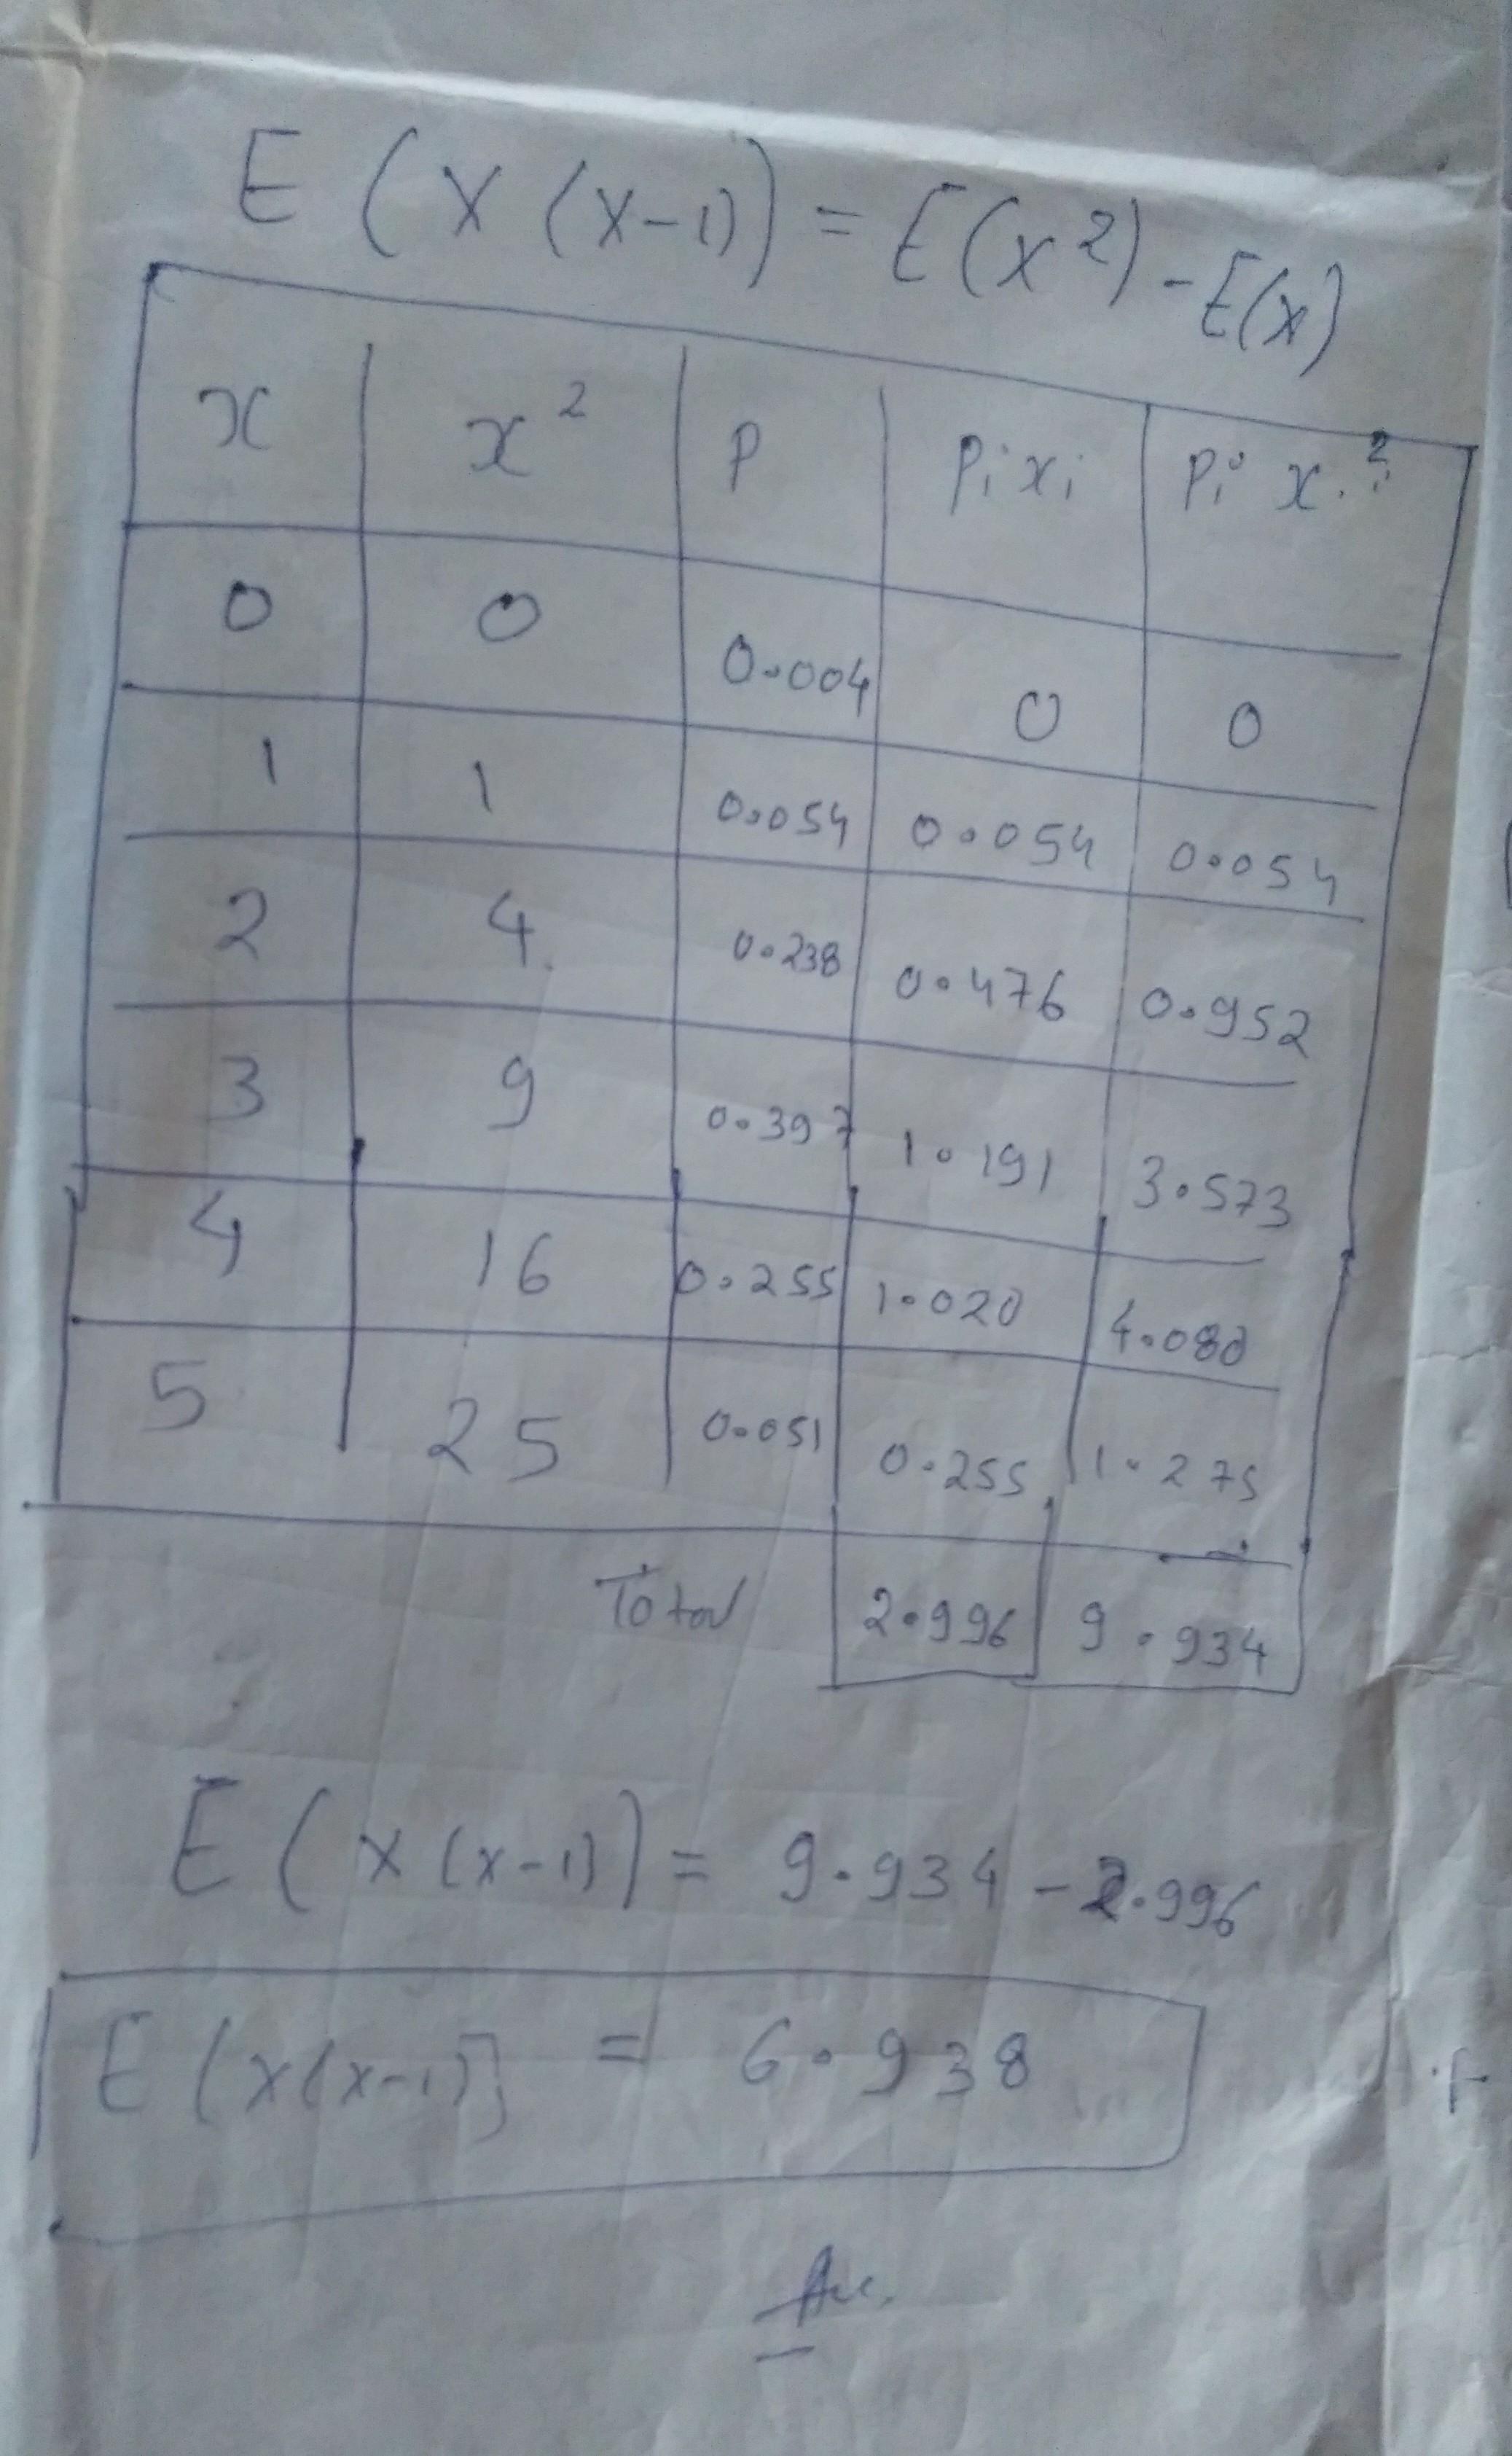 E ( X (X-1)) = E(X²) - E(X)
x x² P Pi xi Pi xi²
0 0 0.004 0 0
1 1 0.054 0.054 0.054
2 4 0.238 0.476 0.952
3 9 0.397 1.191 3.573
4 16 0.255 1.020 4.080
5 25 0.051 0.255 1.275
Total 2.996 9.934
E ( X (X-1)) = 9.934 - 2.996
E (X(X-1)] = 6.938